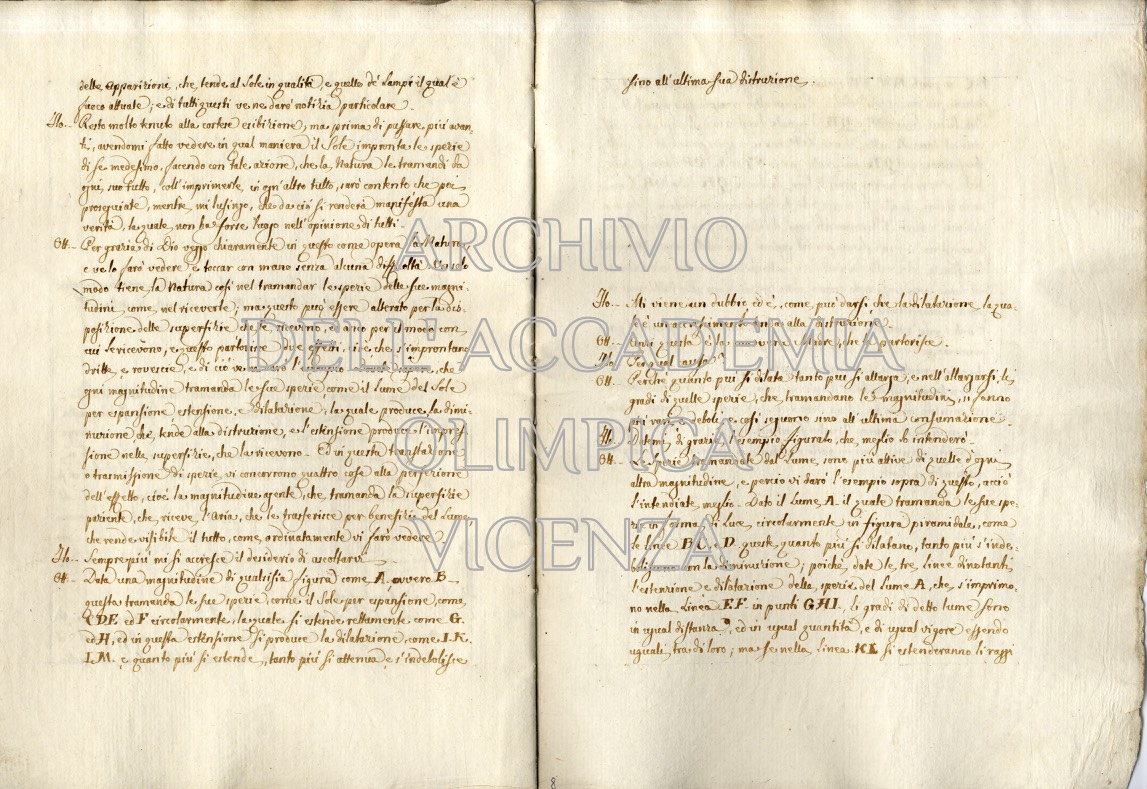 delle Apparizioni, che tende al Sole in qualità, e quello de' Lampi il qual'è
fuoco attuale; e di tutti questi ve ne darò notizia particolare.
Ilo.- Resto molto tenuto alla cortese esibizione, ma prima di passare più avan-
ti, avendomi fatto vedere in qual maniera il Sole impronta le spezie
di se medesimo, facendo con tale azione, che la Natura le tramandi da
ogni suo tutto, coll'imprimerle in ogn'altro tutto, sarò contento che poi
proseguiate, mentre mi lusingo, che da ciò si renderà manifesta una
verità la quale non ha forse luogo nell'opinione di tutti.
Ott.- Per grazia di Dio veggo chiaramente in questo come opera la Natura,
e ve lo farò vedere e toccar con mano senza alcuna difficoltà. Un solo
modo tiene la Natura così nel tramandar le spezie delle sue magni-
tudini, come nel riceverle; ma questo può essere alterato per la dis-
posizione delle superfizie che le ricevono, ed anco per il modo con
cui le ricevono, e questo partorisce due effetti, cioè che s'improntano
dritte e rovescie, e di ciò ve ne darò l'esempio che
ogni magnitudine tramanda le sue spezie, come il lume del Sole
per espansione estensione, e dilatazione, la quale produce la dimi-
nuzione che tende alla distruzione, e l'estensione produce l'impres-
sione nelle superfizie, che la ricevono. Ed in questa translazione
o trasmissione di spezie vi concorrono quattro cose alla perfezione
dell'effetto, cioè la magnitudine agente, che tramanda la superfizie
paziente, che riceve, l'Aria, che le trasferisce per benefizio del Lume,
che rende visibile il tutto, come ordinatamente vi farò vedere.
Ilo.- Sempre più mi si accresce il desiderio di ascoltarvi.
Ott.- Data una magnitudine di qualsisia figura come A ovvero B
questa tramanda le sue spezie, come il Sole per espansione, come
CDE ed F circolarmente, la quale si estende rettamente come G.
ed H, ed in questa estensione si produce la dilatazione, come I.K.
L.M. e quanto più si estende, tanto più si attenua e s'indebolisce
sino all'ultima sua distruzione.
Ilo.- Mi viene un dubbio ed è, come può darsi che la dilatazione la qua-
le è un accrescimento tenda alla distruzione.
Ott.- Anzi questa è la che la partorisce.
Ilo.- Per qual causa?
Ott.- Perchè quanto più si dilata tanto più si allarga, e nell'allargarsi, li
gradi di quelle spezie, che tramandano le magnitudini, si fanno
più rari e deboli e così seguono sino all'ultima consumazione
Ilo.- Datemi, di grazia l'esempio figurato, che meglio lo intenderò.
Ott.- Le spezie tramandate dal Lume, sono più attive di quelle d'ogni
altra magnitudine, e perciò vi darò l'esempio sopra di questo, acciò
l'intendiate meglio. Dato il Lume A. il quale tramanda le sue spe-
zie in forma di Luce circolarmente in figura piramidale, come
le linee B C, e D. queste quanto più si dilatano, tanto più s'inde-
boliscono con la diminuzione; poichè, date le tre linee distanti
l'estenzione e dilatazione della spezie del lume A, che s'imprimo-
no nella Linea EF in punti GHI. li gradi di detto lume sono
in ugual distanza, ed in ugual quantità, e di ugual vigore essendo
uguali tra di loro; ma se nella linea KL si estenderanno li raggi
8
ARCHIVIO
DELLE ACCADEMIA
OLIMPICA
VICENZA